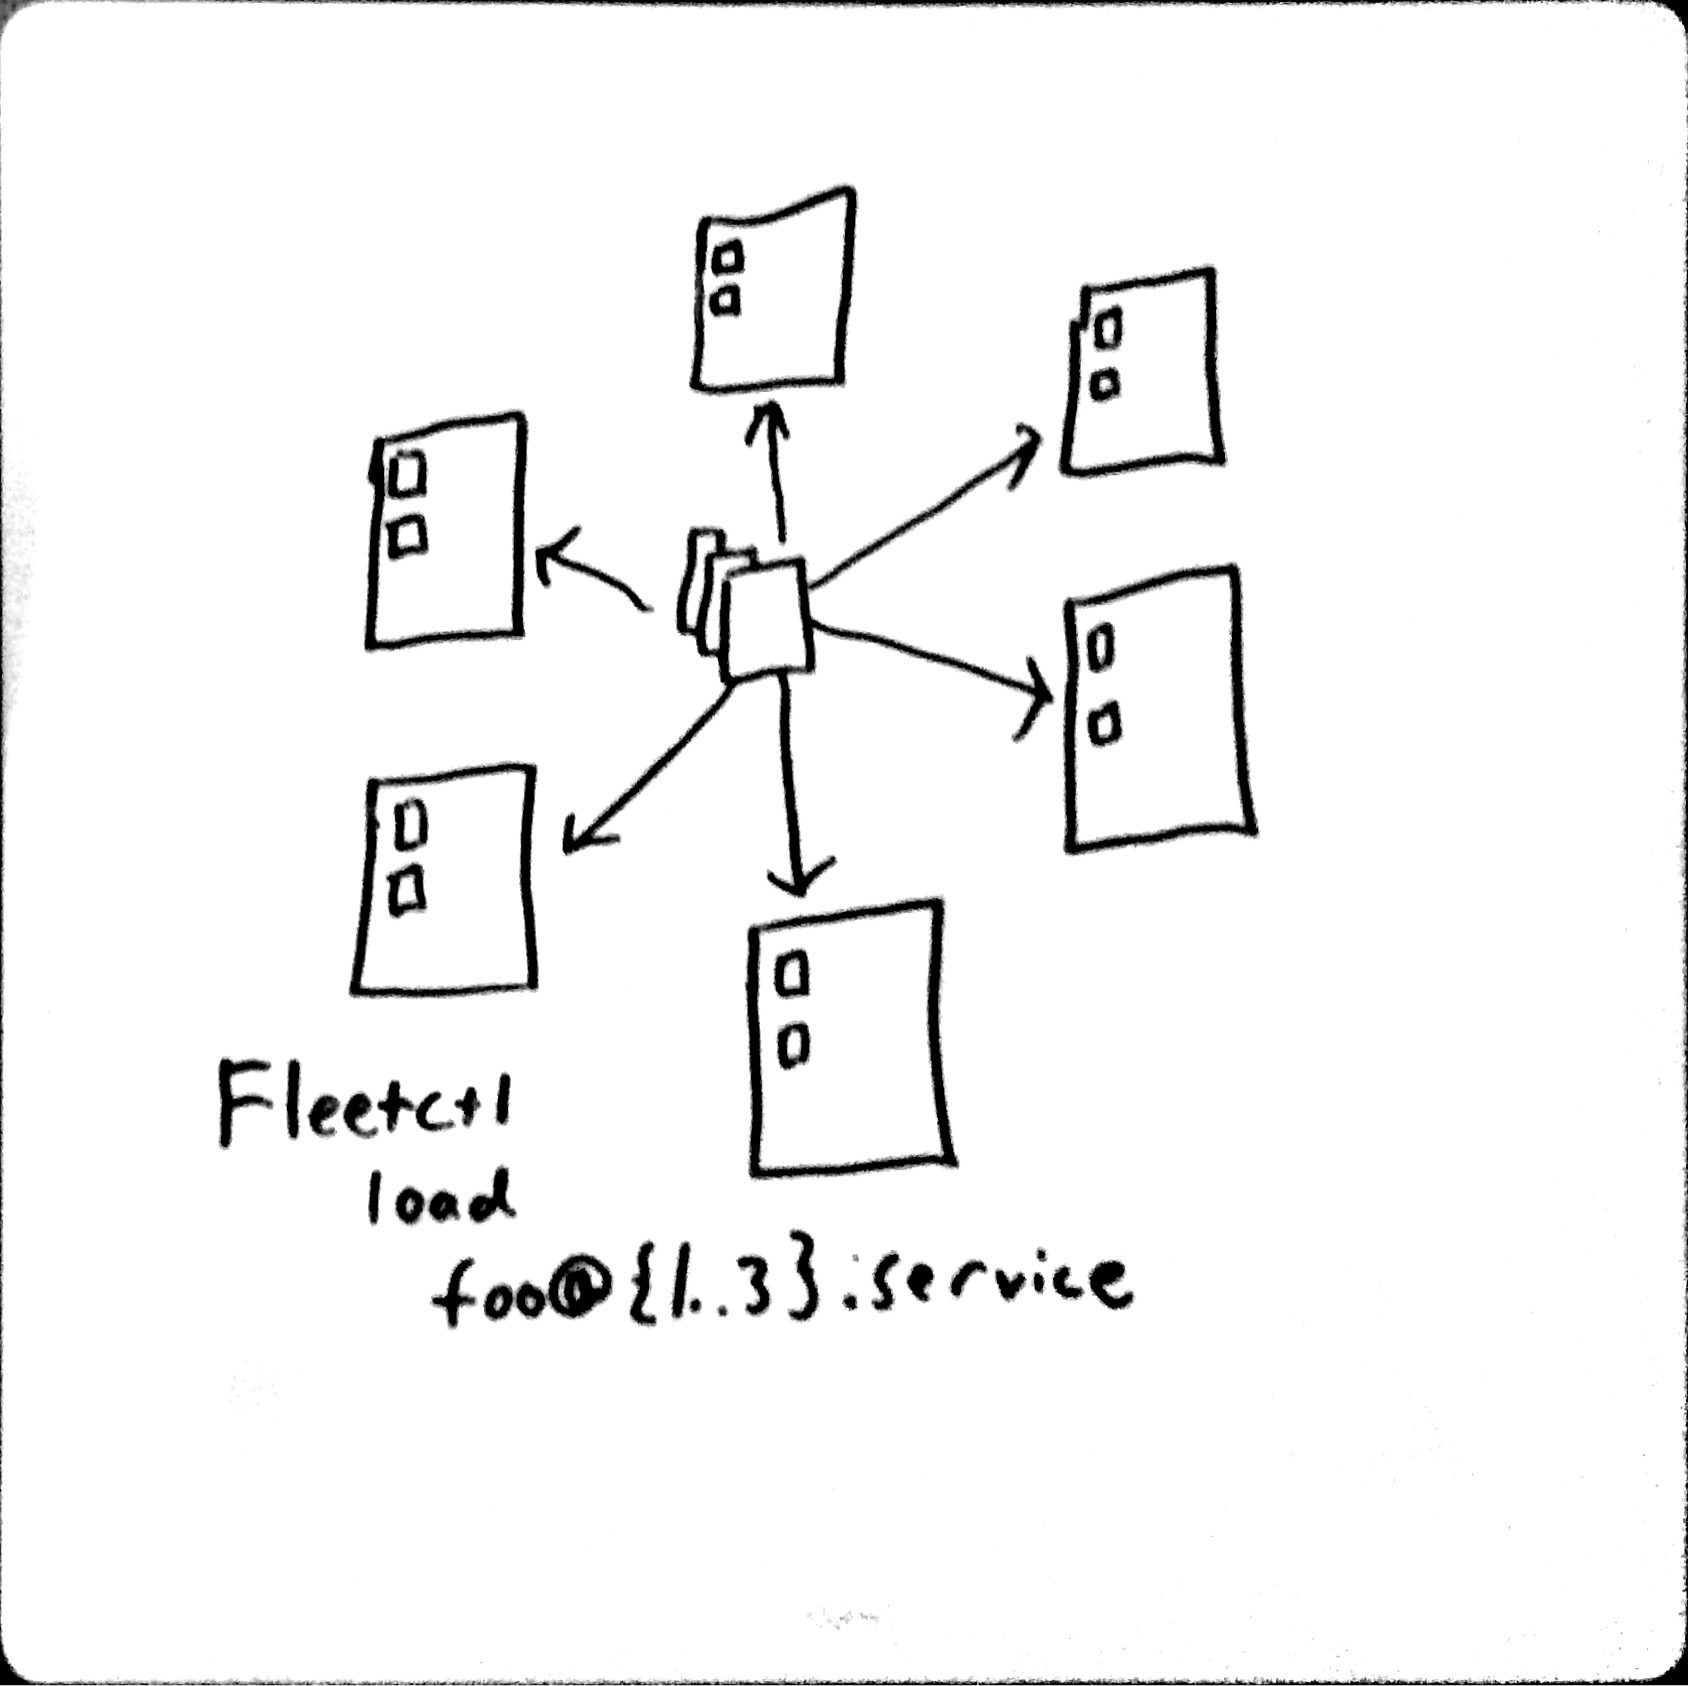 Fleetctl
load
foo@{1..3}.service